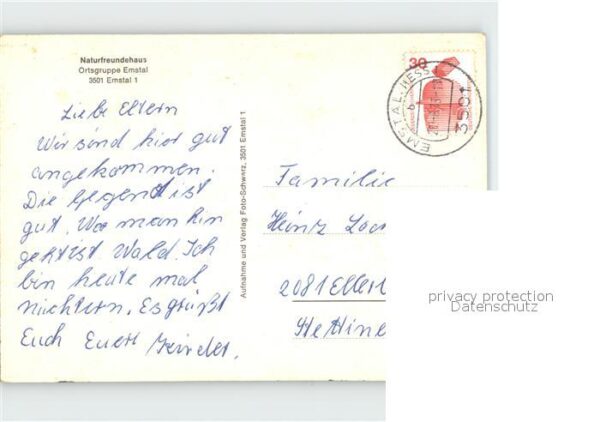 Naturfreundehaus
Ortsgruppe Emstal
3501 Emstal 1
Liebe Eltern
Wir sind hier gut
angekommen.
Die Gegend ist
gut. Wo man hin
geht ist Wald. Ich
bin heute mal
nüchtern. Es grüßt
Euch Eure Kinder.
Aufnahme und Verlag Foto-Schwarz, 3501 Emstal 1
30
EMSTAL, HESS
3501
Familie
Heinz
2081 Eller
privacy protection
Datenschutz